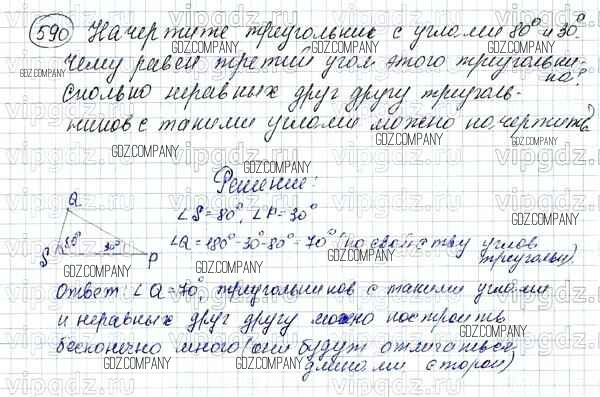 590 Начертите треугольник с углами 80° и 30°.
Чему равен третий угол этого треугольни-
ка?
Сколько неравных друг другу треуголь-
ников с такими углами можно начертить?
Решение:
Q
∠S=80°, ∠P=30°
80° 30°
S P
∠Q=180°-30°-80°=70° (по свойству углов
треугольн.)
Ответ: ∠Q=70°, треугольников с такими углами
и неравных друг другу можно построить
бесконечно много (они будут отличаться
длинами сторон)
GDZ.COMPANY
vipgdz.ru